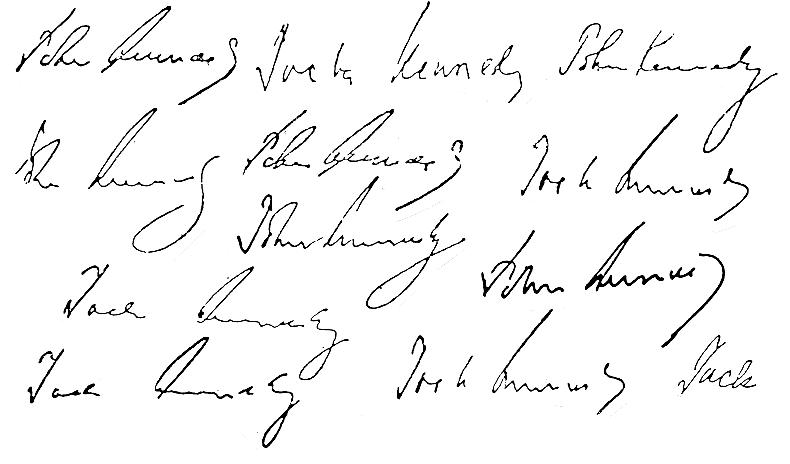 John Kennedy Jack Kennedy John Kennedy
John Kennedy John Kennedy Jack Kennedy
John Kennedy John Kennedy
Jack Kennedy
Jack Kennedy Jack Kennedy Jack